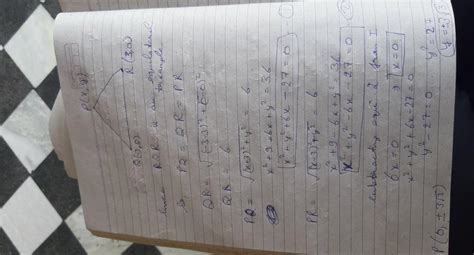 P(x, y)
Q(-3,0) R(3,0)
Since PQR is an equilateral triangle
So, PQ = QR = PR
QR = √(-3-3)² + (0-0)²
QR = 6
PQ = √(x+3)² + y² = 6
x² + 9 + 6x + y² = 36
x² + y² + 6x - 27 = 0 ①
PR = √(x-3)² + y² = 6
x² + 9 - 6x + y² = 36
x² + y² - 6x - 27 = 0 ②
subtracting eqn 2 from 1
6x = 0, x = 0
x² + y² + 6x - 27 = 0
y² - 27 = 0
y² = 27
y = ±3√3
P(0, ±3√3)